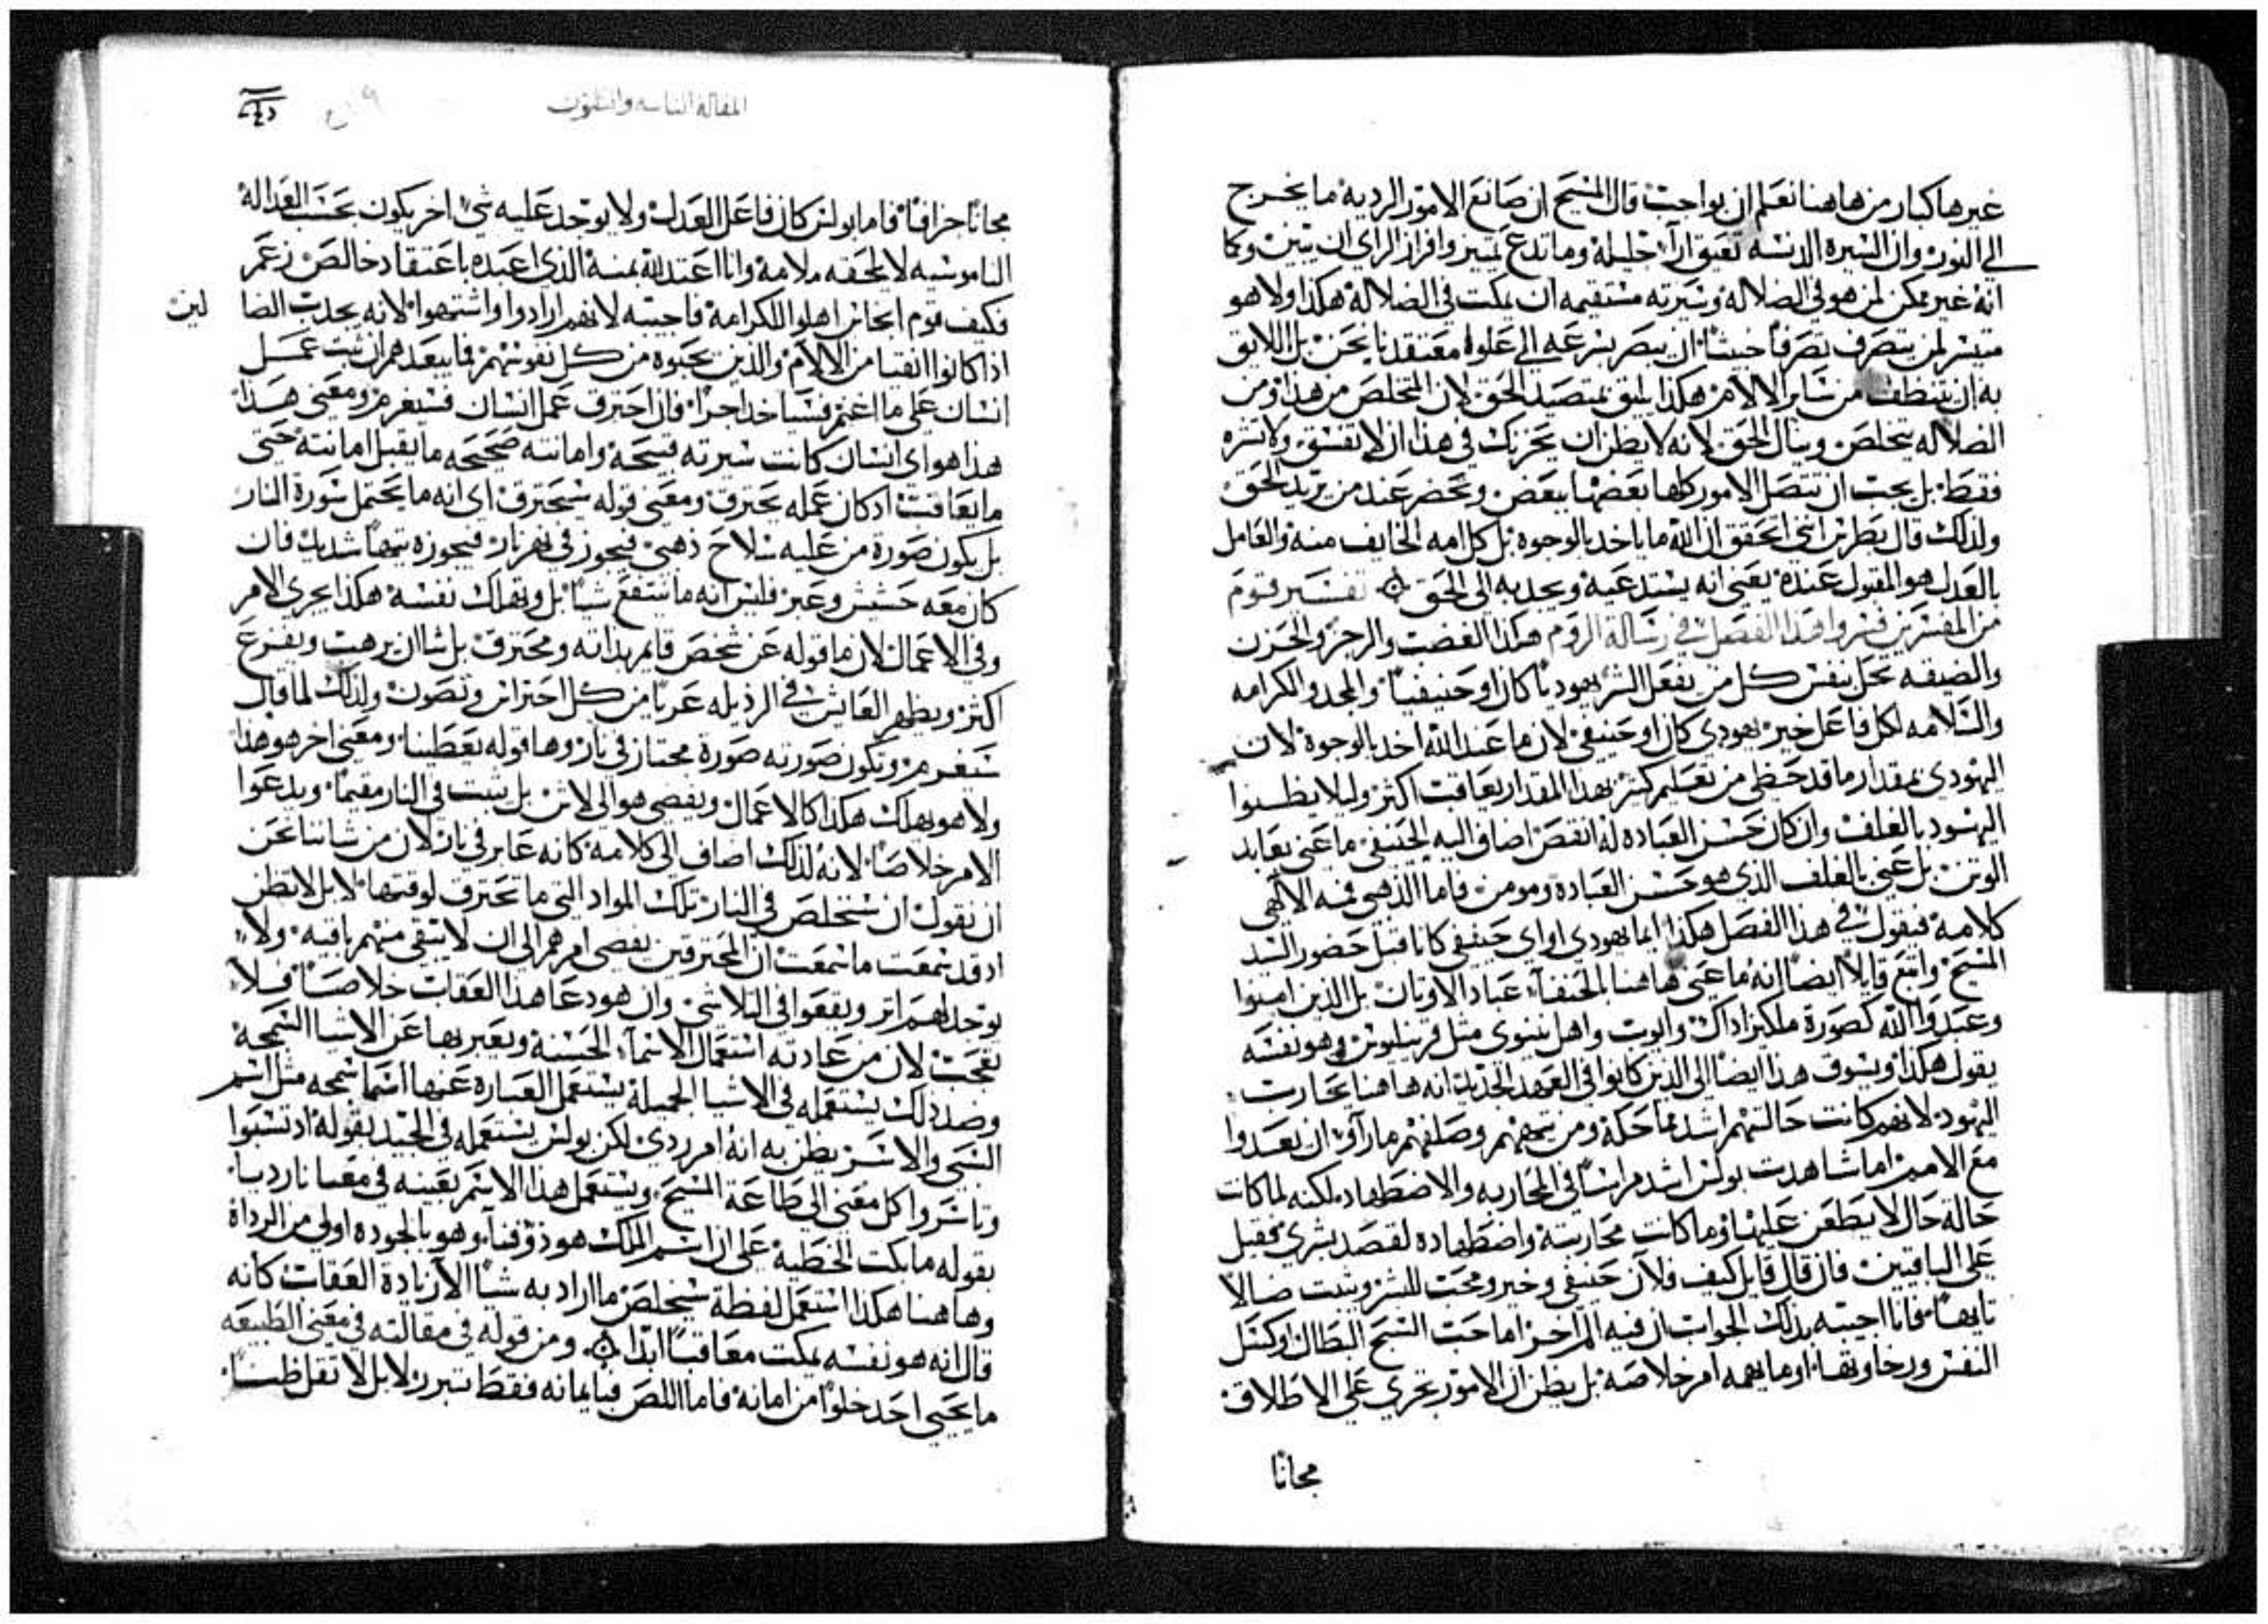 غيرها كبار من هاهنا نعلم ان بواجب قال المسيح ان صانع الامور الرديه ما يخرج
الى النور وان السيره الدنسه تعيق ارآ جليله وما تدع تمييز وافراز الراي ان يتبين وكما
انه غير ممكن لمن هو في الضلاله وسيرته مستقيمه ان يمكث في الضلاله هكذا ولا هو
متيسر لمن يتصرف تصرفاً خبيثاً ان يبصر بسرعه الى علو معتقدنا نحن بل اللايق
به ان يتنظف من ساير الالام هكذا يليق بمتصيد الحق لان المتخلص من هذا ومن
الضلاله يتخلص وينال الحق لانه لا يظن ان يجزيك في هذا ان لا تفسق ولا تشره
فقط بل يجب ان تتصل الامور كلها بعضها ببعض وتحضر عند من يريد الحق
ولذلك قال بطرس انني اتحقق ان الله ما ياخد بالوجوه بل كل امه الخايف منه والعامل
بالعدل هو المقبول عنده يعني انه يستدعيه ويجدبه الى الحق تفسير قوم
من المفسرين فسروا هذا الفصل في رسالة الروم هكذا الغضب والرجز والحزن
والضيقه تحل بنفس كل من يفعل الشر يهودياً كان او حنيفياً والمجد والكرامه
والسلامه لكل فاعل خير يهودي كان او حنيفي لان ما عند الله اخد بالوجوه لان
اليهودي بمقدار ما قد حظي من تعليم كثير بهذا المقدار يعاقب اكثر وليلا يظنوا
اليهود بالغلف وان كان حسن العباده له انقص اضاف اليه الحنيفي ما عنى بعابد
الوتن بل عنى بالغلف الذي هو حسن العباده ومومن فاما الذهبي فمه الالهي
كلامه فيقول في هذا الفصل هكذا ايما يهودي او اي حنيفي كانا قبل حضور السيد
المسيح واتبع قايلاً ايضاً انه ما عنى هاهنا بالحنفآ عباد الاوتان بل الذين امنوا
وعبدوا الله كصورة ملكيزاداك وايوب واهل نينوى مثل قرنيليوس وهو نفسه
يقول هكذا ويسوق هذا ايضاً الى الدين كانوا في العهد الجديد انه هاهنا يحارب
اليهود لانهم كانت حالتهم اشد مماحكة ومن تيههم وصلفهم ما رآوا ان يعدوا
مع الامم اما شاهدت بولس اشد مراساً في المحاربه والاضطهاد لكنه لما كانت
حالة حال لا يطعن عليها وما كانت محاربته واضطهاده لقصد بشري فقبل
على الباقيين فان قال قايل كيف فلان حنيفي وخير ومحب للبشر وثبت ضالا
تايهاً فانا اجيبه بذلك الجواب ان فيه الم اخر اما حب السبح البطال او كسل
النفس ورخاوتها او ما يهمه امر خلاصه بل يظن ان الامور تجري على الاطلاق
مجانا
المقاله التاسعه والثلثون
مجاناً جزافاً فاما بولس كان فاعل العدل ولا يوجد عليه شي اخر يكون بحسب العداله
الناموسيه لا يلحقه ملامة وانا اعتد لله بمنه الذي اعبده باعتقاد خالص زعم
فكيف قوم انجاس اهلوا للكرامه فاجيبه لانهم ارادوا واشتهوا لانه يجدب الضا لين
اذا كانوا انقيا من الالام والذين يحبوه من كل نفوسهم فما يبعدهم ان ثبت عمل
انسان على ما اغنم فسياخد اجراً فان احترق عمل انسان فسيغرم ومعنى هذا
هذا هو اي انسان كانت سيرته قبيحة وامانته صحيحه ما يقبل امانته حتى
ما يعاقب اد كان عمله يحترق ومعنى قوله سيحترق اي انه ما يحتمل سورة النار
بل يكون صورة من عليه سلاح ذهبي فيجوز في نهر نار فيجوزه بتيهاً شديد فان
كان معه حشيش وعير فليس انه ما ينتفع شيئاً بل ويهلك نفسه هكذا يجري الامر
وفي الاعمال لان ما قوله عن شخص قايم بذاته ومحترق بل شاان يرهب ويفزع
اكثر ويظهر العايش في الرذيله عرياً من كل احتراس وتصون ولذلك لما قال
سيغرم وتكون صورته صورة مجتاز في نار وها قوله يعطينا ومعنى اخر هو هذا
ولا هو يهلك هكذا كالاعمال ويفضي هو الى لاشي بل يثبت في النار مقيماً ويدعوا
الامر خلاصاً لانه لذلك اضاف الى كلامه كانه عابر في نار لان من شاننا نحن
ان نقول ان ستخلص في النار تلك المواد التي ما تحترق لوقتها لا بل لا تظن
اد قد سمعت ما سمعت ان المحترقين يفضي امرهم الى ان لا يبقى منهم باقيه ولا
يوجد لهم اتر ويقعوا في التلاشي وان هو دعا هذا العقاب خلاصاً فلا
تعجب لان من عادته استعمال الاسمآ الحسنه ويعبر بها عن الاشيا السمجة
وضد ذلك يستعمله في الاشيا الجميله يستعمل العباره عنها اسما سمجه مثل اسم
السبي والاسر يظن به انه امر ردي لكن بولس يستعمله في الجيد بقوله اد تسبوا
وتاسروا كل معنى الى طاعة المسيح ويستعمل هذا الاسم بعينه في معنا نا رديا
بقوله ما بكت الخطيه على ان اسم الملك هو ذو فنآ وهو بالجوده اولى من الرداة
وهاهنا هكذا استعمل لفظة سيخلص ما اراد به شياً الا زيادة العقاب كانه
قال انه هو نفسه يمكث معاقباً ابداً ومن قوله في مقالته في معنى الطبيعه
ما يحيي احد خلواً من امانه فاما اللص فبايمانه فقط تبرر لا بل لا تقل ظنا